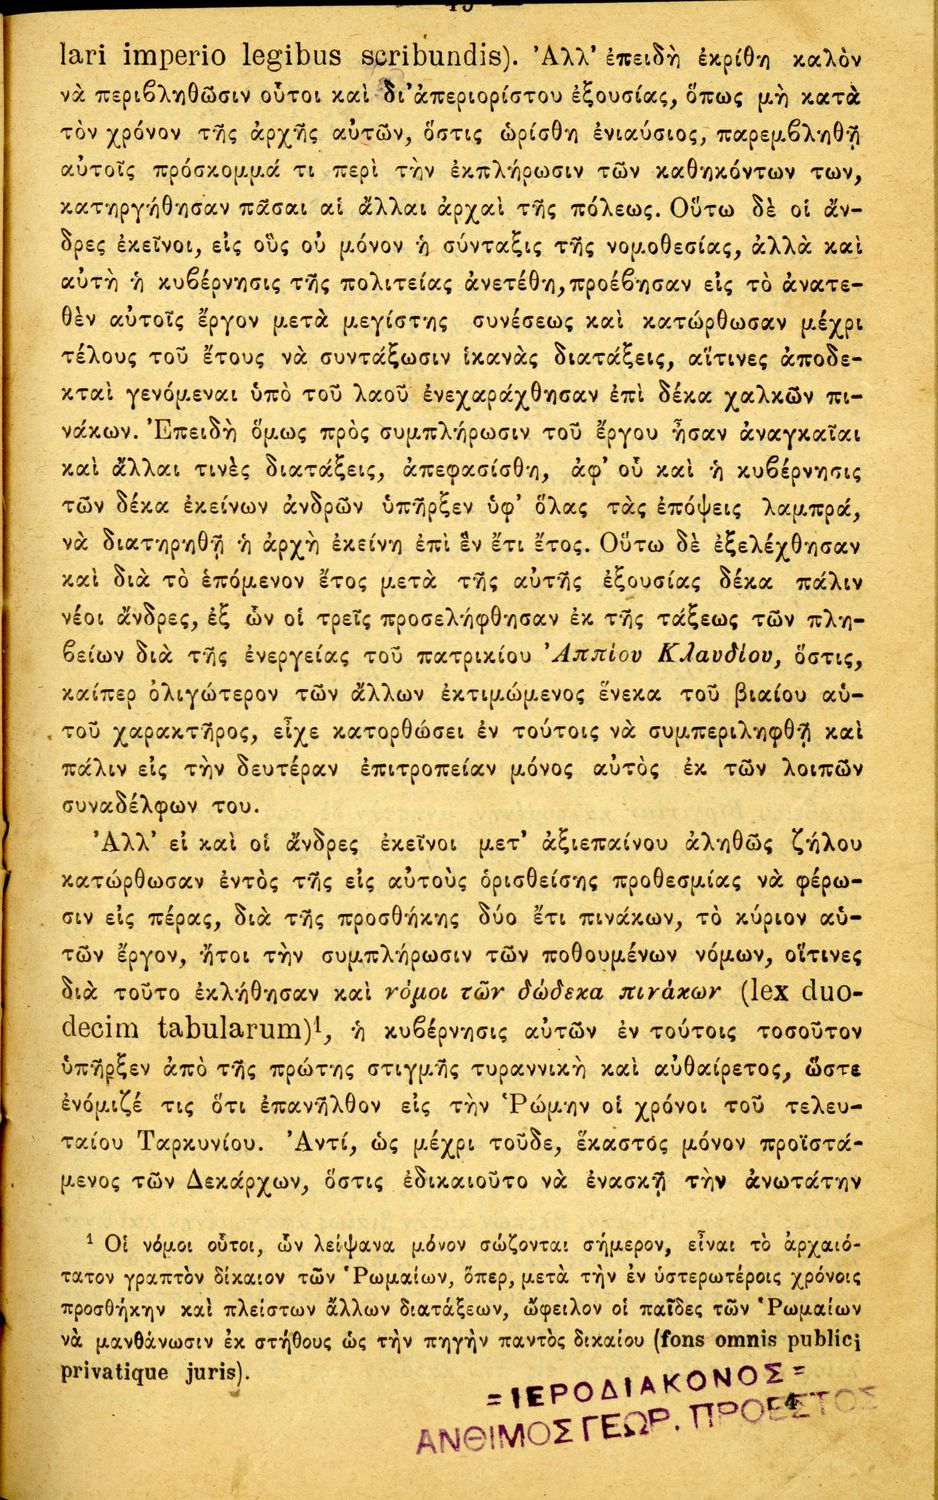 lari imperio legibus scribundis). Ἀλλ' ἐπειδὴ ἐκρίθη καλὸν
νὰ περιβληθῶσιν οὗτοι καὶ δι' ἀπεριορίστου ἐξουσίας, ὅπως μὴ κατὰ
τὸν χρόνον τῆς ἀρχῆς αὐτῶν, ὅστις ὡρίσθη ἐνιαύσιος, παρεμβληθῇ
αὐτοῖς πρόσκομμά τι περὶ τὴν ἐκπλήρωσιν τῶν καθηκόντων των,
κατηργήθησαν πᾶσαι αἱ ἄλλαι ἀρχαὶ τῆς πόλεως. Οὕτω δὲ οἱ ἄν-
δρες ἐκεῖνοι, εἰς οὓς οὐ μόνον ἡ σύνταξις τῆς νομοθεσίας, ἀλλὰ καὶ
αὐτὴ ἡ κυβέρνησις τῆς πολιτείας ἀνετέθη, προέβησαν εἰς τὸ ἀνατε-
θὲν αὐτοῖς ἔργον μετὰ μεγίστης συνέσεως καὶ κατώρθωσαν μέχρι
τέλους τοῦ ἔτους νὰ συντάξωσιν ἱκανὰς διατάξεις, αἵτινες ἀποδε-
κταὶ γενόμεναι ὑπὸ τοῦ λαοῦ ἐνεχαράχθησαν ἐπὶ δέκα χαλκῶν πι-
νάκων. Ἐπειδὴ ὅμως πρὸς συμπλήρωσιν τοῦ ἔργου ἦσαν ἀναγκαῖαι
καὶ ἄλλαι τινὲς διατάξεις, ἀπεφασίσθη, ἀφ' οὗ καὶ ἡ κυβέρνησις
τῶν δέκα ἐκείνων ἀνδρῶν ὑπῆρξεν ὑφ' ὅλας τὰς ἐπόψεις λαμπρά,
νὰ διατηρηθῇ ἡ ἀρχὴ ἐκείνη ἐπὶ ἓν ἔτι ἔτος. Οὕτω δὲ ἐξελέχθησαν
καὶ διὰ τὸ ἑπόμενον ἔτος μετὰ τῆς αὐτῆς ἐξουσίας δέκα πάλιν
νέοι ἄνδρες, ἐξ ὧν οἱ τρεῖς προσελήφθησαν ἐκ τῆς τάξεως τῶν πλη-
βείων διὰ τῆς ἐνεργείας τοῦ πατρικίου Ἀππίου Κλαυδίου, ὅστις,
καίπερ ὀλιγώτερον τῶν ἄλλων ἐκτιμώμενος ἕνεκα τοῦ βιαίου αὑ-
τοῦ χαρακτῆρος, εἶχε κατορθώσει ἐν τούτοις νὰ συμπεριληφθῇ καὶ
πάλιν εἰς τὴν δευτέραν ἐπιτροπείαν μόνος αὐτὸς ἐκ τῶν λοιπῶν
συναδέλφων του.
Ἀλλ' εἰ καὶ οἱ ἄνδρες ἐκεῖνοι μετ' ἀξιεπαίνου ἀληθῶς ζήλου
κατώρθωσαν ἐντὸς τῆς εἰς αὐτοὺς ὁρισθείσης προθεσμίας νὰ φέρω-
σιν εἰς πέρας, διὰ τῆς προσθήκης δύο ἔτι πινάκων, τὸ κύριον αὑ-
τῶν ἔργον, ἤτοι τὴν συμπλήρωσιν τῶν ποθουμένων νόμων, οἵτινες
διὰ τοῦτο ἐκλήθησαν καὶ νόμοι τῶν δώδεκα πινάκων (lex duo-
decim tabularum)¹, ἡ κυβέρνησις αὐτῶν ἐν τούτοις τοσοῦτον
ὑπῆρξεν ἀπὸ τῆς πρώτης στιγμῆς τυραννικὴ καὶ αὐθαίρετος, ὥστε
ἐνόμιζέ τις ὅτι ἐπανῆλθον εἰς τὴν Ῥώμην οἱ χρόνοι τοῦ τελευ-
ταίου Ταρκυνίου. Ἀντί, ὡς μέχρι τοῦδε, ἕκαστος μόνον προϊστά-
μενος τῶν Δεκάρχων, ὅστις ἐδικαιοῦτο νὰ ἐνασκῇ τὴν ἀνωτάτην
¹ Οἱ νόμοι οὗτοι, ὧν λείψανα μόνον σώζονται σήμερον, εἶναι τὸ ἀρχαιό-
τατον γραπτὸν δίκαιον τῶν Ῥωμαίων, ὅπερ, μετὰ τὴν ἐν ὑστερωτέροις χρόνοις
προσθήκην καὶ πλείστων ἄλλων διατάξεων, ὤφειλον οἱ παῖδες τῶν Ῥωμαίων
νὰ μανθάνωσιν ἐκ στήθους ὡς τὴν πηγὴν παντὸς δικαίου (fons omnis publici
privatique juris).
=ΙΕΡΟΔΙΑΚΟΝΟΣ=
4
ΑΝΘΙΜΟΣ ΓΕΩΡ. ΠΡΟΕΣΤΟΣ